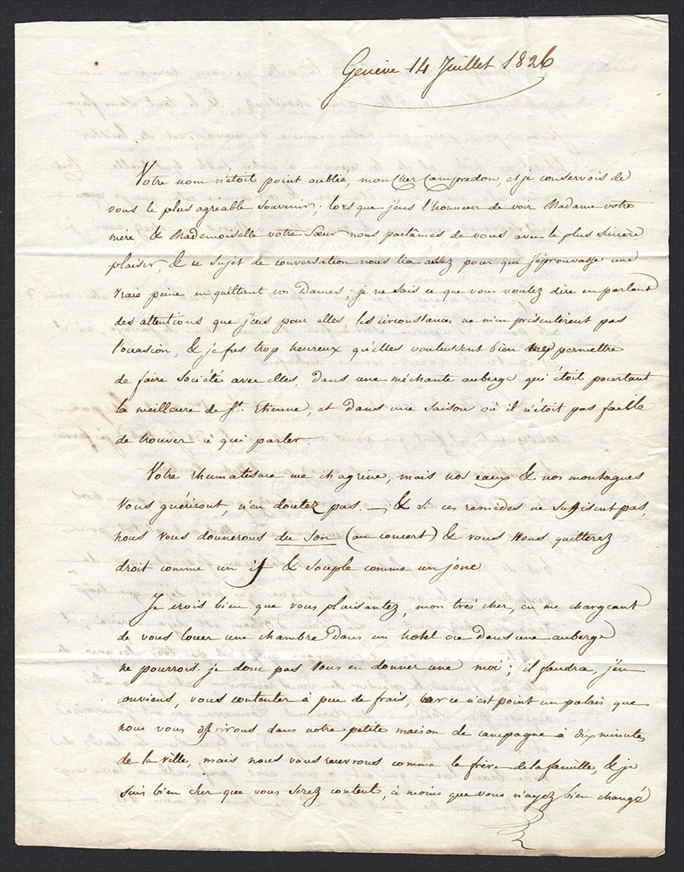 Genève 14 Juillet 1826
Votre nom n'étoit point oublié, mon cher Campredon, et je conservois de
vous le plus agréable souvenir; lorsque j'eus l'honneur de voir Madame votre
mère & Mademoiselle votre Sœur nous parlâmes de vous avec le plus sincère
plaisir, & ce sujet de conversation nous lia assez pour que j'éprouvasse une
vraie peine en quittant ces Dames, je ne sais ce que vous voulez dire en parlant
des attentions que j'eus pour elles les circonstances ne m'en présentèrent pas
l'occasion, & je fus trop heureux qu'elles voulussent bien me permettre
de faire société avec elles, dans une méchante auberge qui étoit pourtant
la meilleure de St. Etienne, et dans une saison où il n'étoit pas facile
de trouver à qui parler
Votre rhumatisme me chagrine, mais nos eaux & nos montagnes
vous guériront, n'en doutez pas. — & si ces remèdes ne suffisent pas,
nous vous donnerons du Son (au concert) & vous nous quitterez
droit comme un if & souple comme un jonc
Je crois bien que vous plaisantez, mon très cher, en me chargeant
de vous louer une chambre dans un hotel ou dans une auberge
ne pourrois-je donc pas vous en donner une moi; il faudra, j'en
conviens, vous contenter à peu de frais, car ce n'est point un palais que
nous vous offrirons dans notre petite maison de campagne à dix minutes
de la ville, mais nous vous recevrons comme le frère de la famille, & je
suis bien sur que vous serez content, à moins que vous n'ayez bien changé